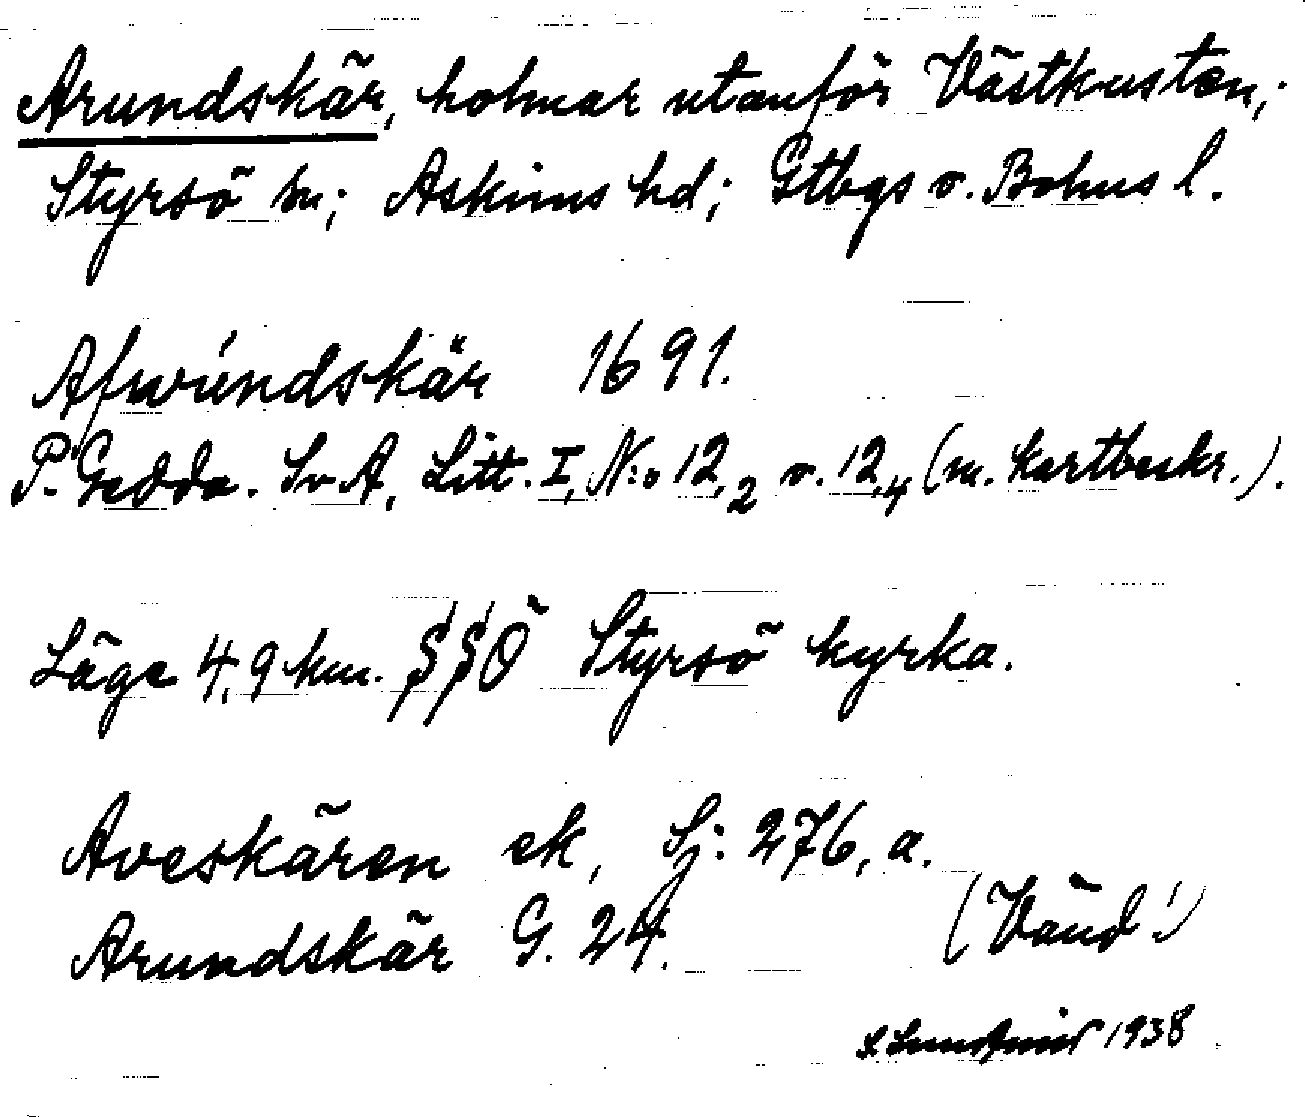 Arundskär, holmar utanför Västkusten,;
Styrsö sn; Askims hd; Gtbgs o. Bohus l.
Afwúndskär 1691.
P. Gedda. SvA, Litt. I, N:o 12,2 o. 12,4 (m. kartbeskr.).
Läge 4,9 km. SSÖ Styrsö kyrka.
Aveskären ek, Sj: 276, a.
Arundskär G. 24.
(Vänd!)
1938